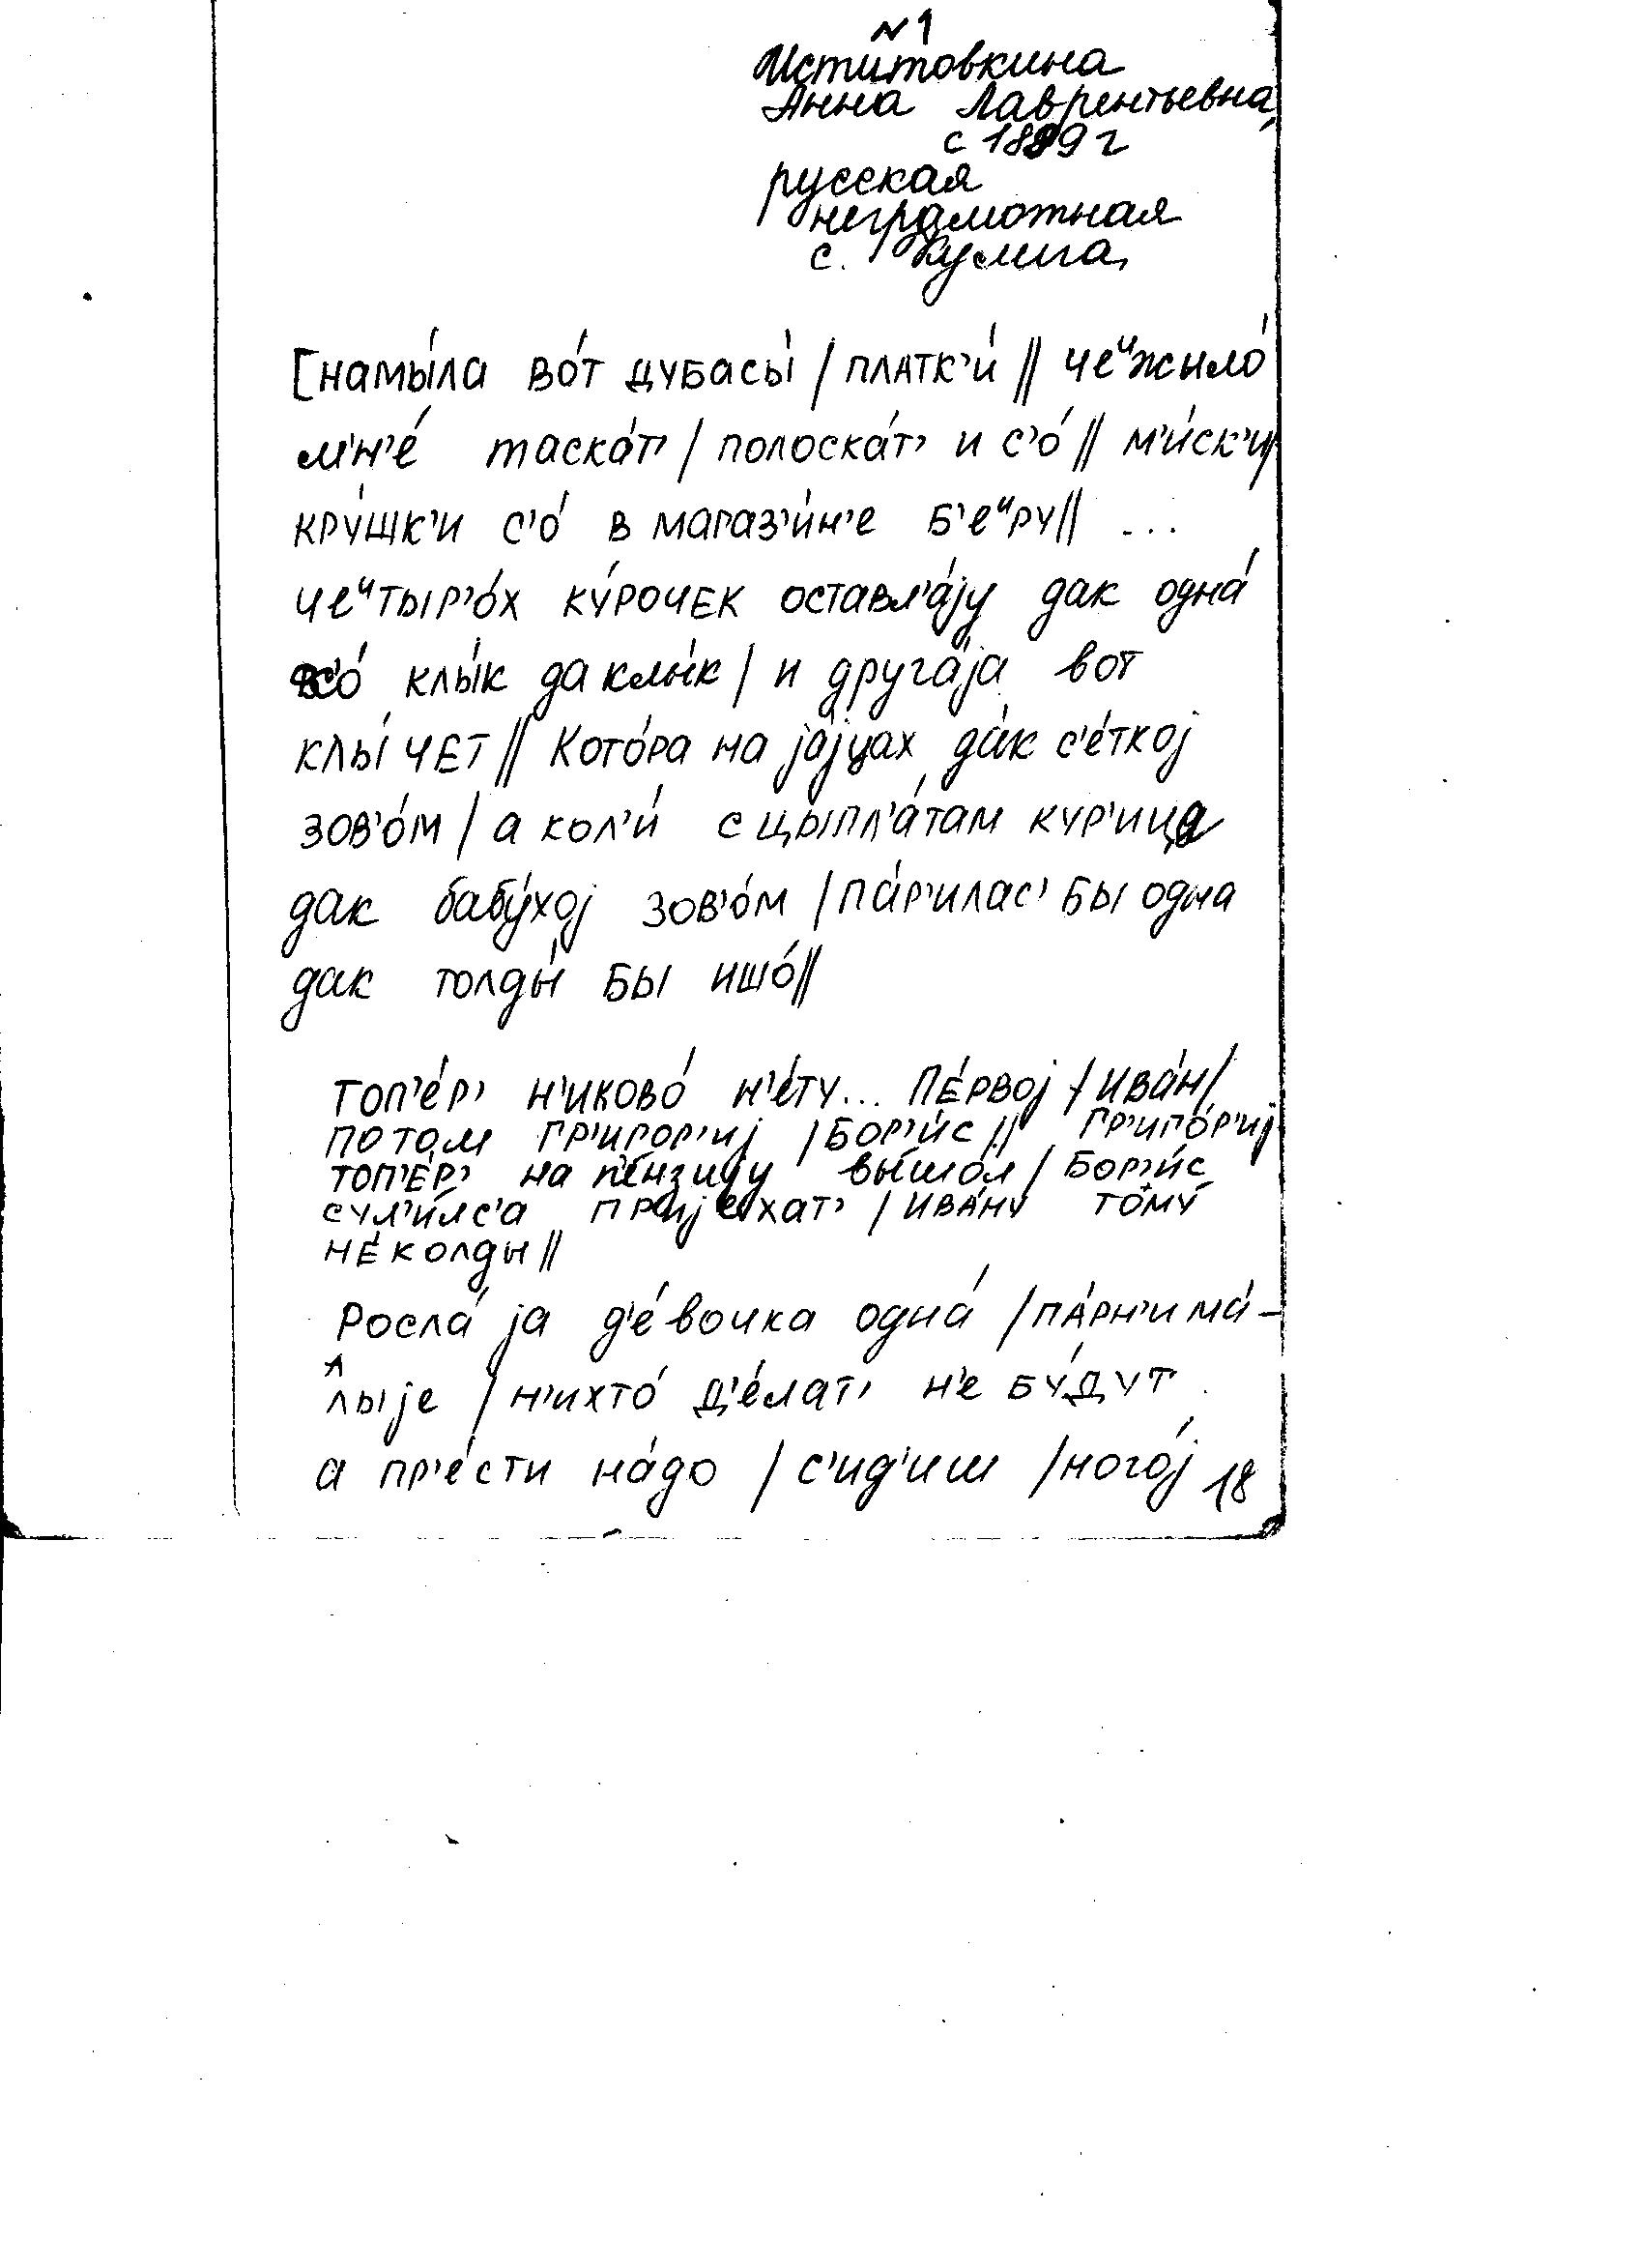 N 1
Иститовкина
Анна Лаврентьевна,
с 1889 г
русская
неграмотная
с. Кулига,
[намы́ла во́т дубасы́ / платк'и́ // чеᶦжыло́
м'н'е́ таска́т' / полоска́т' и с'о́ // м'и́ск'и
кру́шк'и с'о́ в магаз'и́н'е б'еᶦру // ...
чеᶦтыр'о́х ку́рочек оставл'а́jу дак одна́
с'о́ клы́к да клы́к / и друга́jа вот
клы́чет // Кото́ра на jа́jцах да́к с'е́ткоj
зов'о́м / а кол'и́ с цыпл'а́там ку́р'ица
дак бабу́хоj зов'о́м / па́р'илас' бы одна
дак толды́ бы ишо́ //
топ'е́р' н'иково́ н'е́ту... Пе́рвоj / Ива́н /
пото́м Гр'иго́р'иj / Бор'и́с // Гр'иго́р'иj
топ'е́р' на пе́нзиjу вы́шол / Бор'и́с
сул'и́лс'а приjехат' / Ива́ну то́му́
не́колды //
Росла́ jа д'е́вочка одна́ / па́рн'и ма́-
лыjе / н'ихто́ д'е́лат' н'е бу́дут
а пр'е́сти на́до / с'ид'и́ш / ного́j 18